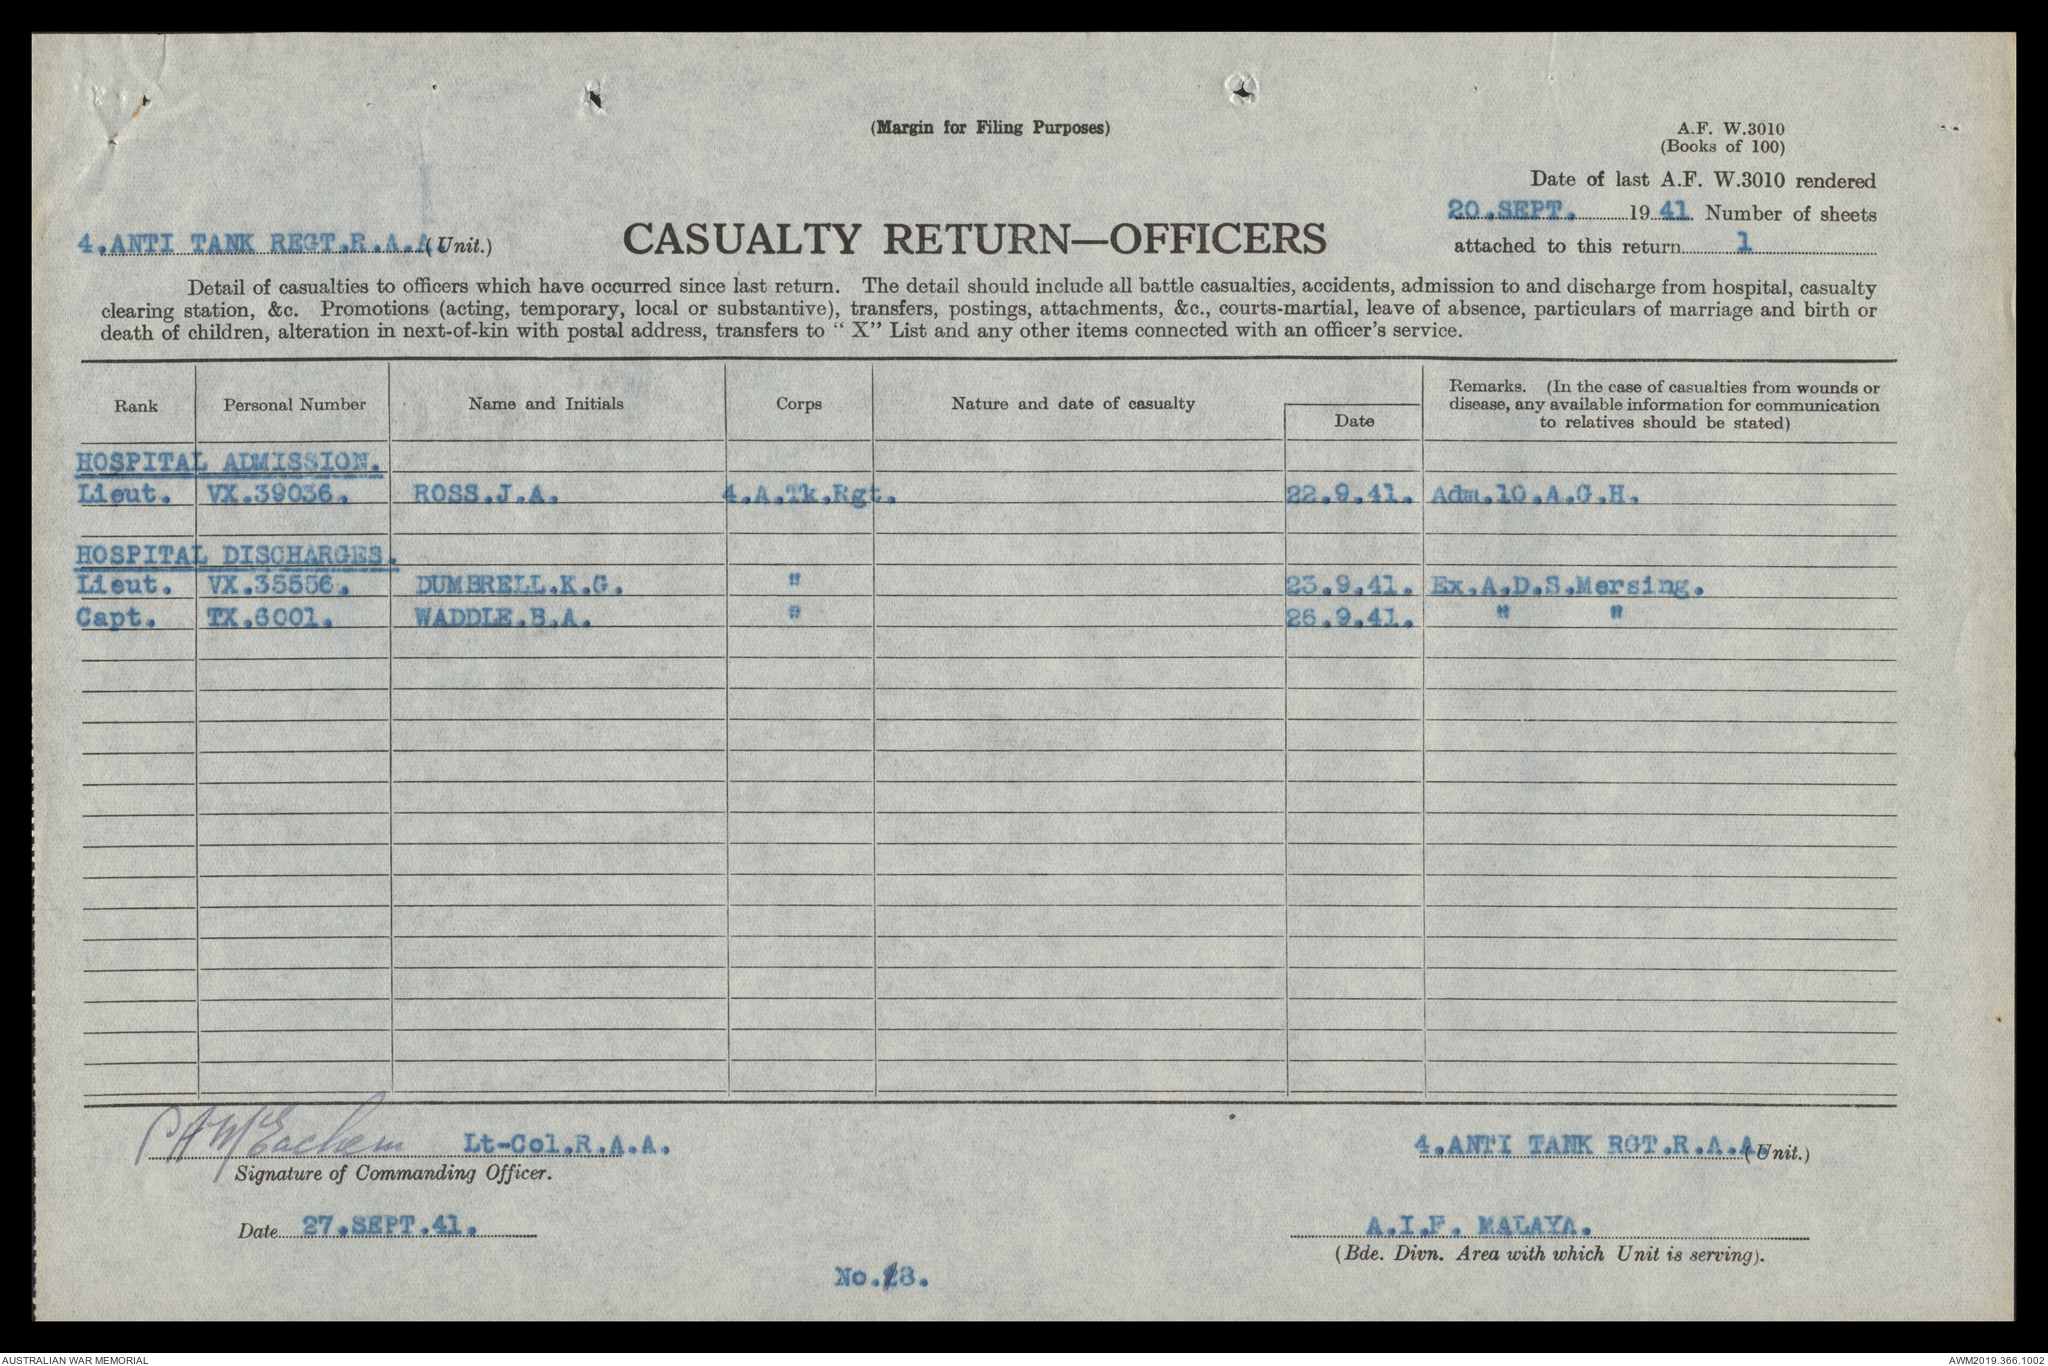 (Margin for Filing Purposes)
A.F. W.3010
(Books of 100)
Date of last A.F. W.3010 rendered
20.SEPT. 1941 Number of sheets
attached to this return 1
4.ANTI TANK REGT.R.A.A (Unit.)
CASUALTY RETURN—OFFICERS
Detail of casualties to officers which have occurred since last return. The detail should include all battle casualties, accidents, admission to and discharge from hospital, casualty
clearing station, &c. Promotions (acting, temporary, local or substantive), transfers, postings, attachments, &c., courts-martial, leave of absence, particulars of marriage and birth or
death of children, alteration in next-of-kin with postal address, transfers to "X" List and any other items connected with an officer's service.
Rank Personal Number Name and Initials Corps Nature and date of casualty Date
Remarks. (In the case of casualties from wounds or
disease, any available information for communication
to relatives should be stated)
HOSPITAL ADMISSION.
Lieut. VX.39036. ROSS.J.A. 4.A.Tk.Rgt. 22.9.41. Adm.10.A.G.H.
HOSPITAL DISCHARGES.
Lieut. VX.35556. DUMBRELL.K.G. " 23.9.41. Ex.A.D.S.Mersing.
Capt. TX.6001. WADDLE.B.A. " 26.9.41. " "
C A McEachern Lt-Col.R.A.A.
Signature of Commanding Officer.
4.ANTI TANK RGT.R.A.A. (Unit.)
Date 27.SEPT.41.
A.I.F. MALAYA.
(Bde. Divn. Area with which Unit is serving).
No. 8.
AUSTRALIAN WAR MEMORIAL
AWM2019.366.1002